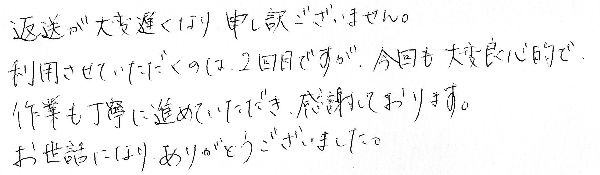 返送が大変遅くなり申し訳ございません。
利用させていただくのは、2回目ですが、今回も大変良心的で、
作業も丁寧に進めていただき、感謝しております。
お世話になりありがとうございました。